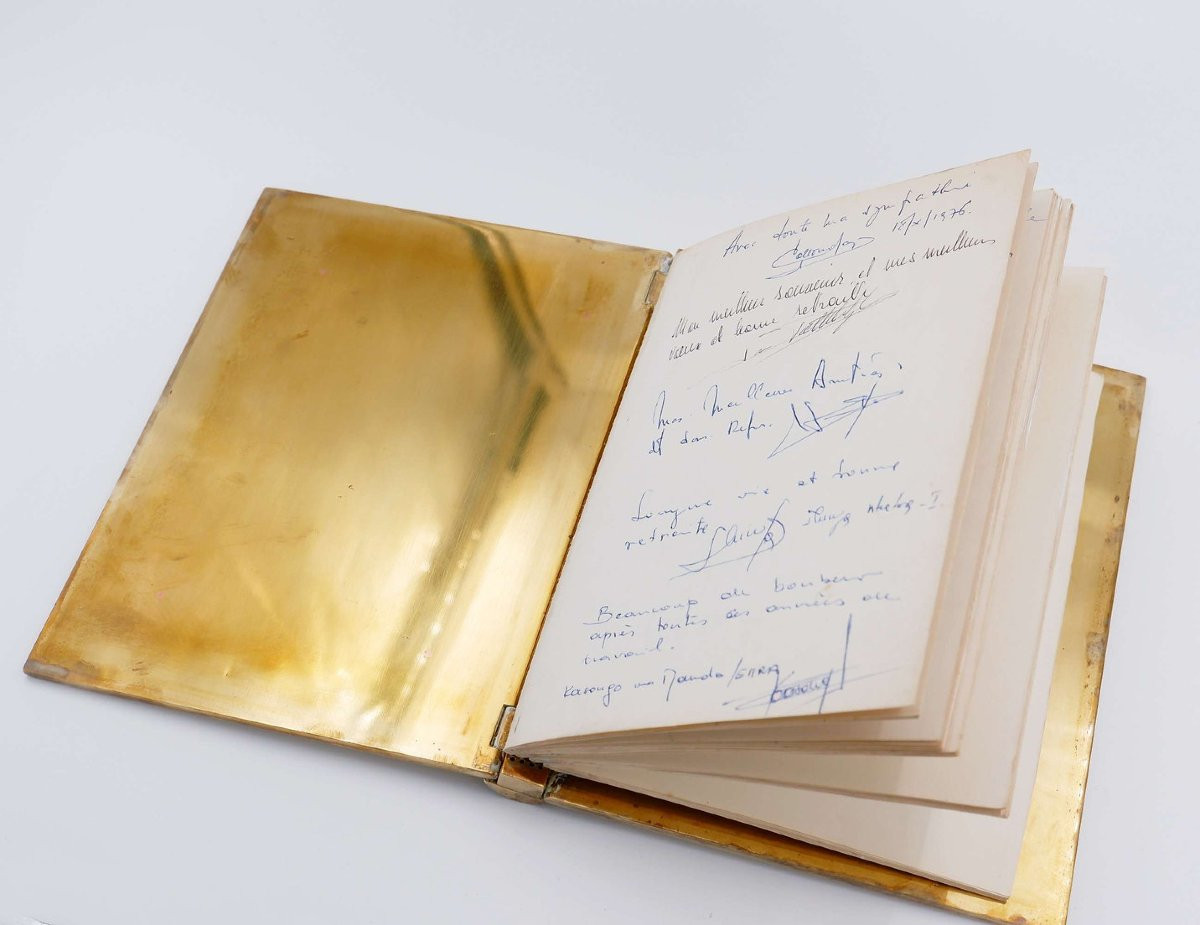 Avec toute ma sympathie
18/X/1976.
Mon meilleur souvenir et mes meilleurs
vœux et bonne retraite
Mes Meilleurs Amitiés,
et bon Repos.
Longue vie et bonne
retraite Ilunga
Beaucoup de bonheur
après toutes ces années de
travail.
Kasongo wa